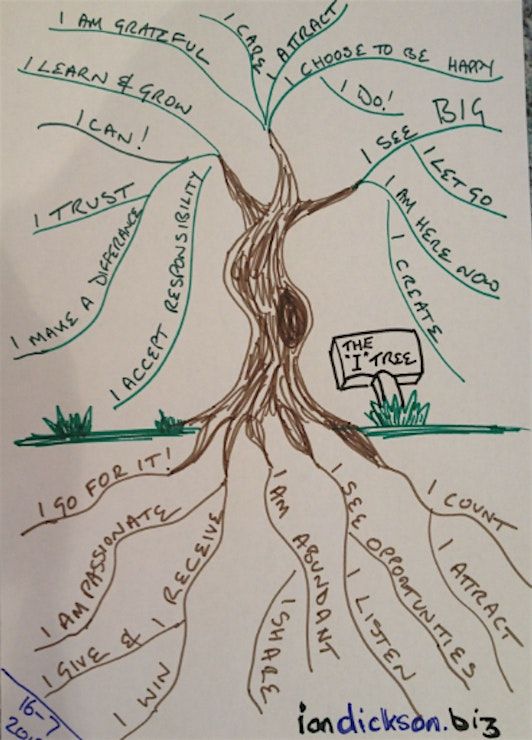 I AM GRATEFUL
I CARE
I ATTRACT
I CHOOSE TO BE HAPPY
I DO!
I LEARN & GROW
I CAN!
I TRUST
I MAKE A DIFFERANCE
I ACCEPT RESPONSIBILITY
I SEE BIG
I LET GO
I AM HERE NOW
I CREATE
THE
"I" TREE
I GO FOR IT!
I AM PASSIONATE
I GIVE & I RECEIVE
I WIN
I AM ABUNDANT
I SHARE
I SEE OPPORTUNITIES
I LISTEN
I COUNT
I ATTRACT
16-7
iandickson.biz